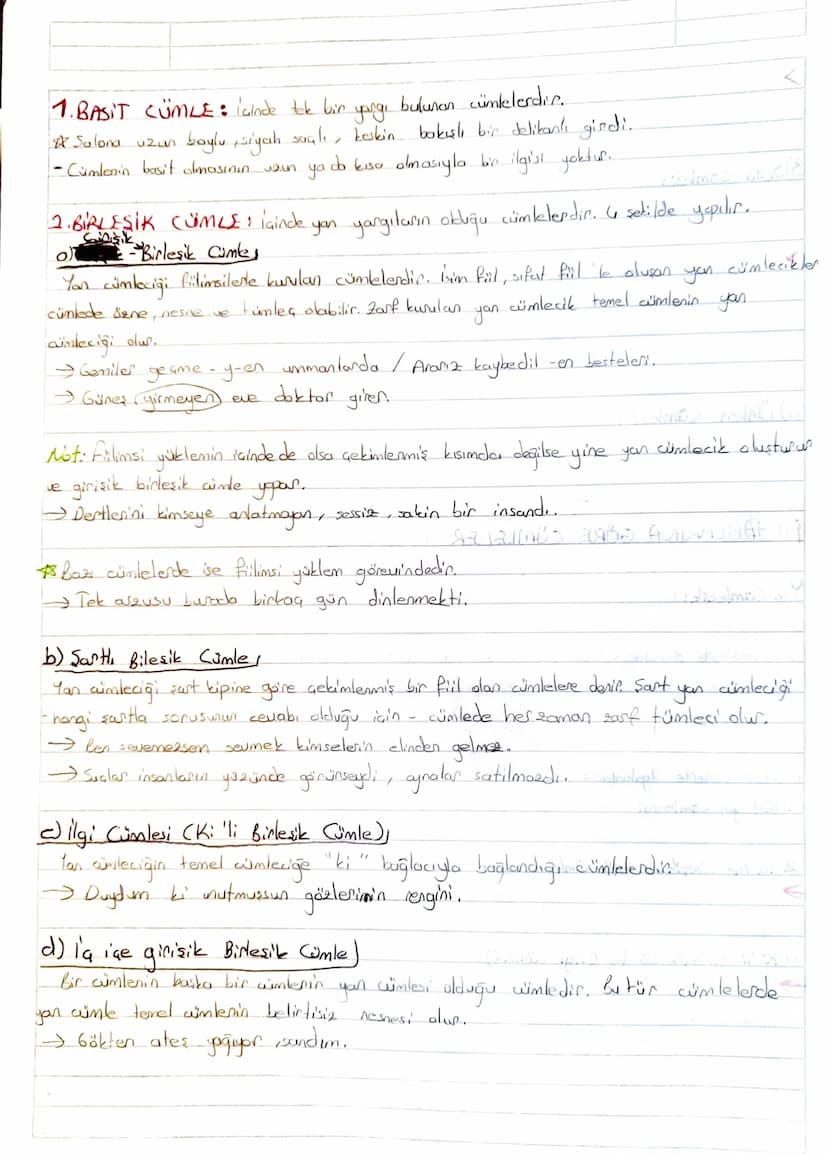 1. BASİT CÜMLE: İçinde tek bir yargı bulunan cümlelerdir.
☆ Salona uzun boylu, siyah saçlı, keskin bakışlı bir delikanlı girdi.
- Cümlenin basit olmasının uzun ya da kısa olmasıyla bir ilgisi yoktur.
2. BİRLEŞİK CÜMLE: İçinde yan yargıların olduğu cümlelerdir. 4 şekilde yapılır.
a) Girişik - Birleşik Cümle
Yan cümleciği fiilimsilerle kurulan cümlelerdir. İsim fiil, sıfat fiil 'le oluşan yan cümlecikler
cümlede özne, nesne ve tümleç olabilir. Zarf kurulan yan cümlecik temel cümlenin yan
cümleciği olur.
→ Gemiler geçme - y-en ummanlarda / Aranız kaybedil -en besteleri.
→ Güneş girmeyen eve doktor girer.
Not: Fiilimsi yüklemin içinde de olsa çekimlenmiş kısımda değilse yine yan cümlecik oluşturur
ve girişik birleşik cümle yapar.
→ Dertlerini kimseye anlatmayan, sessiz, sakin bir insandı.
☆ Bazı cümlelerde ise fiilimsi yüklem görevindedir.
→ Tek arzusu burada birkaç gün dinlenmekti.
b) Şartlı Bileşik Cümle
Yan cümleciği şart kipine göre çekimlenmiş bir fiil olan cümlelere denir. Şart yan cümleciği
- hangi şartla sorusunun cevabı olduğu için - cümlede her zaman zarf tümleci olur.
→ Ben sevemezsem sevmek kimselerin elinden gelmez.
→ Suçlar insanların yüzünde görünseydi, aynalar satılmazdı.
c) İlgi Cümlesi (Ki 'li Birleşik Cümle)
Yan cümleciğin temel cümleciğe "ki" bağlacıyla bağlandığı cümlelerdir.
→ Duydum ki unutmuşsun gözlerimin rengini.
d) İç içe girişik Birleşik Cümle
Bir cümlenin başka bir cümlenin yan cümlesi olduğu cümledir. Bu tür cümlelerde
yan cümle temel cümlenin belirtisiz nesnesi olur.
→ Gökten ateş yağıyor sandım.